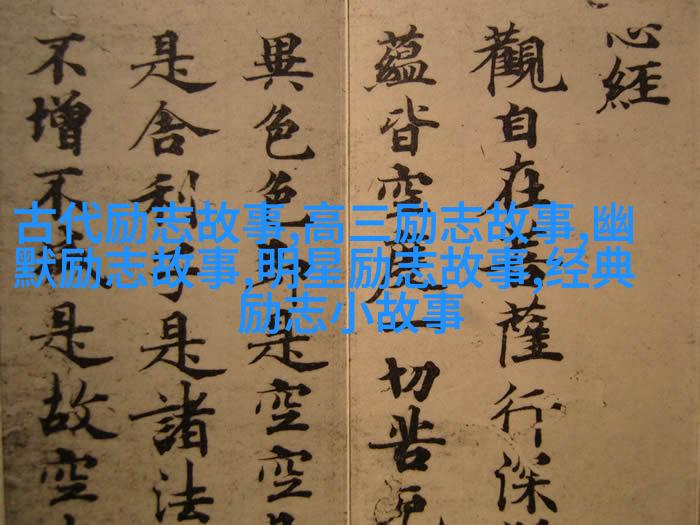 心經
觀自在菩薩行深
蘊皆空度一切苦厄
異色色是空空
是舍利子是諸法
不增不是故空
古代励志故事,高三励志故事,幽
默励志故事,明星励志故事,经典
励志小故事